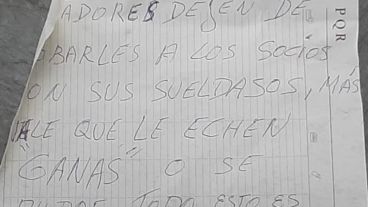 ADORES DEJEN DE
OBARLES A LOS SOCIOS
ON SUS SUELDASOS, MÁS
ALE QUE LE ECHEN
"GANAS" O SE
TODO ESTO ES
PQR